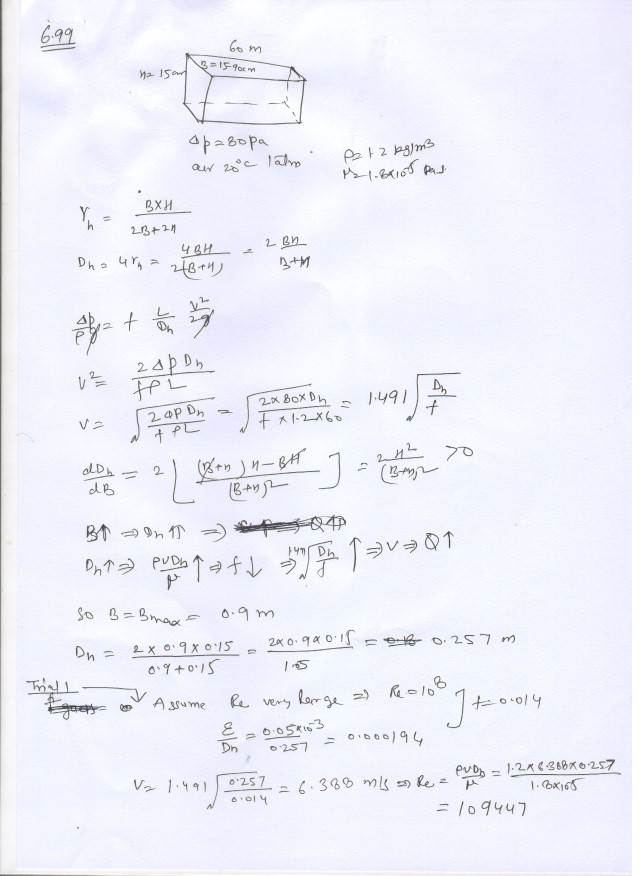 6.99
60 m
H = 15cm
B = 15-90cm
Δp = 80 pa
air 20°C 1 atm
ρ = 1.2 kg/m3
μ = 1.8×10⁻⁵ Pa.s
r_h = (B×H)/(2B+2H)
D_h = 4r_h = 4BH/(2(B+H)) = 2 BH/(B+H)
Δp/ρg = f L/D_h V²/2g
V² = 2ΔpD_h/(fρL)
V = √(2ΔpD_h/(fρL)) = √((2×80×D_h)/(f×1.2×60)) = 1.491 √(D_h/f)
dD_h/dB = 2 [((B+H)H-BH)/(B+H)²] = 2H²/(B+H)² >0
B↑ ⇒ D_h ↑↑ ⇒
D_h↑ ⇒ ρVD_h/μ ↑ ⇒ f↓ ⇒ 1.491 √(D_h/f) ↑ ⇒ V ⇒ Q↑
So B = Bmax = 0.9 m
D_h = (2×0.9×0.15)/(0.9+0.15) = (2×0.9×0.15)/1.05 = 0.257 m
Trial 1
Assume Re very large ⇒ Re = 10⁸ ] f = 0.014
ε/D_h = (0.05×10⁻³)/0.257 = 0.000194
V = 1.491 √(0.257/0.014) = 6.388 m/s ⇒ Re = ρVD_h/μ = (1.2×6.388×0.257)/(1.8×10⁻⁵)
= 109447